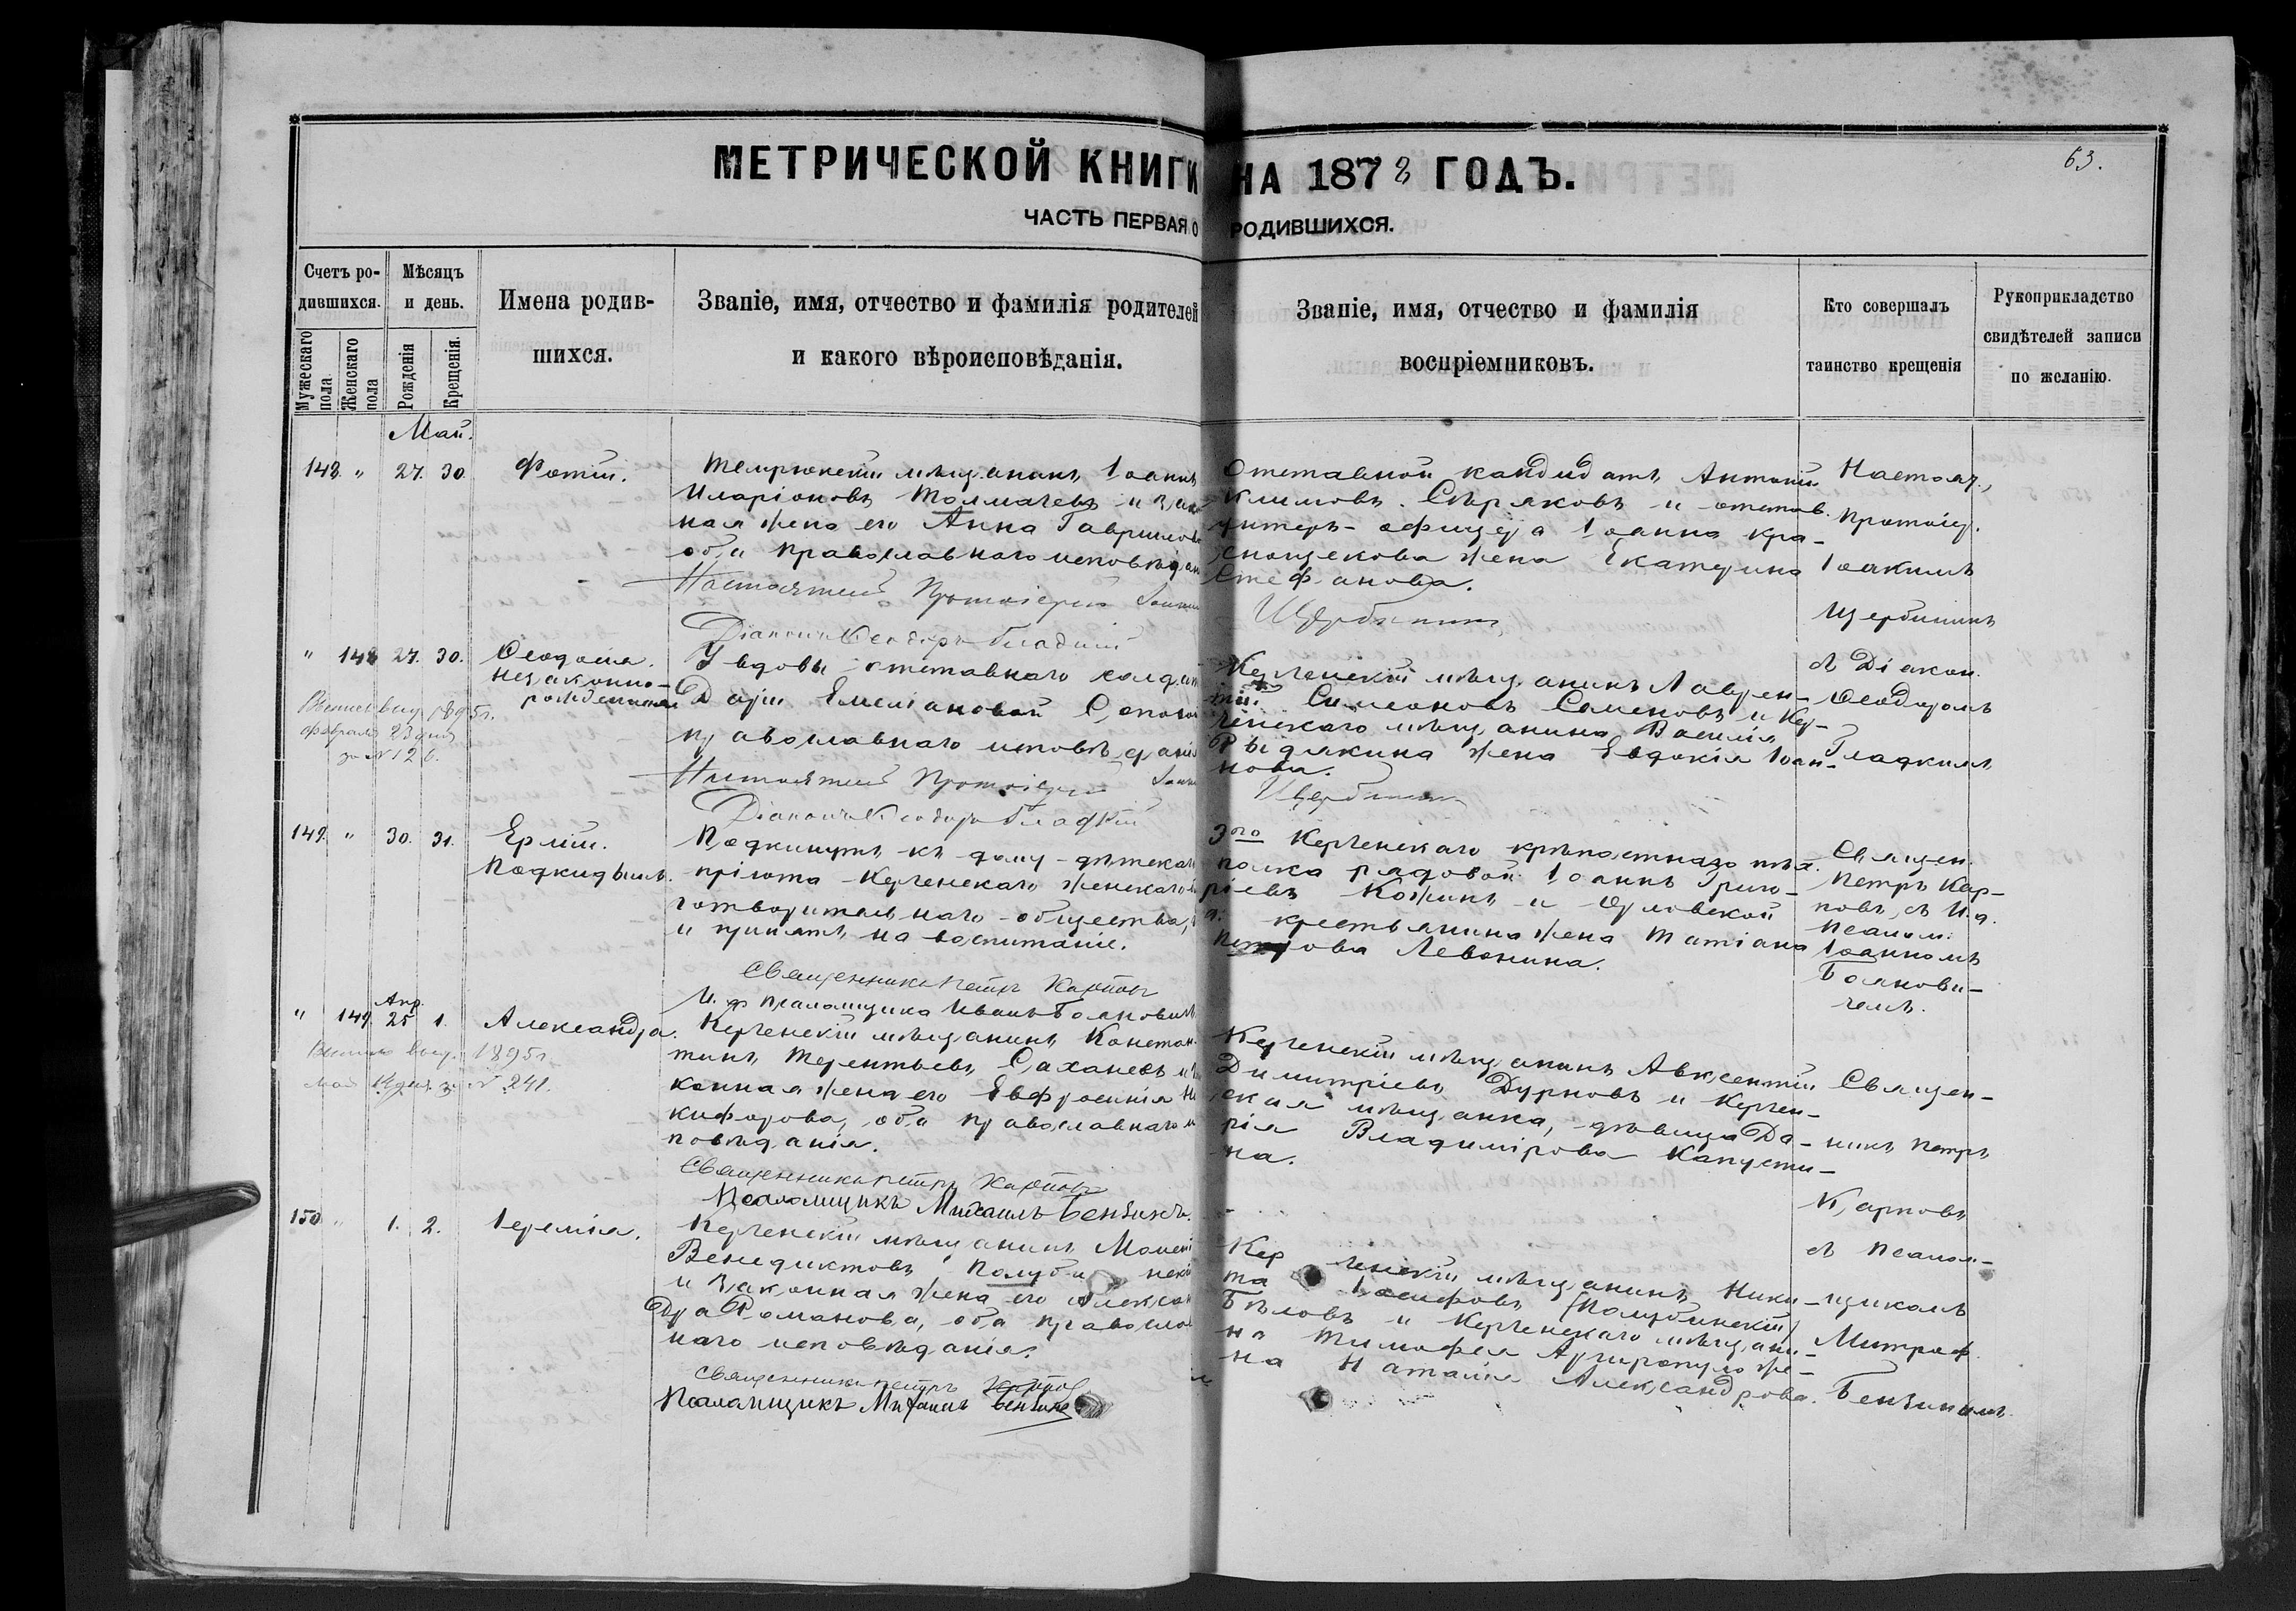 МЕТРИЧЕСКОЙ КНИГИ НА 1878 ГОДЪ.
63.
ЧАСТЬ ПЕРВАЯ О РОДИВШИХСЯ.
Счетъ ро-
дившихся.
Мужескаго пола
Женскаго пола
Мѣсяцъ
и день.
Рожденія
Крещенія.
Имена родив-
шихся.
Званіе, имя, отчество и фамилія родителей
и какого вѣроисповѣданія.
Званіе, имя, отчество и фамилія
воспріемниковъ.
Кто совершалъ
таинство крещенія
Рукоприкладство
свидѣтелей записи
по желанію.
Май.
148. " 27. 30. Фотій.
Темрюкскій мѣщанинъ Іоаннъ
Иларіоновъ Толмачевъ и зако
ная жена его Анна Гаврилов
оба православнаго исповѣдан
Настоятель Протоіерей Іоаким
Діаконъ Ѳеодоръ Гладкій
Отставной кандидатъ Антоній
Климовъ Сѣряковъ и отстав.
унтеръ-офицера Іоанна Кра-
снощекова жена Екатерина
Стефанова.
Щербинин
Настоят.,
Протоіер.
Іоакимъ
Щербининъ
съ Діакон.
Ѳеодоромъ
Гладкимъ
" 148 27. 30. Ѳеодосія.
незаконно-
рожденная
1895г.
февраля 23 дня
за № 126.
У вдовы отставнаго солдат
Даріи Емеліановой
православнаго исповѣдані
Настоятель Протоіерей Іоаким
Діаконъ Ѳеодоръ Гладкій
Керченскій мѣщанинъ Лаврен-
тій Симеоновъ Семеновъ и Кер-
ченскаго мѣщанина Василія
Рыдякина жена Евдокія Іоан-
нова.
Щербинин
149. " 30. 31. Ермій.
Подкидышъ.
Подкинутъ къ дому-дѣтскаго
пріюта Керченскаго женскаго
готворительнаго общества,
и принятъ на воспитаніе.
Священникъ Петръ Карпов
И. д. Псаломщика Иванъ Боянович
3го Керченскаго крѣпостнаго пѣх.
полка рядовой Іоаннъ Григо-
ріевъ Кожинъ и Орловской
г. крестьянина жена Татіана
Петрова Левонина.
Священ.
Петръ Кар-
повъ, съ И.д.
Псалом.
Іоанномъ
Боянови-
чемъ.
Апр.
" 149. 25 1. Александра.
1895г
мая за № 241.
Керченскій мѣщанинъ Констан-
тинъ Терентьевъ Саханевъ и за
конная жена его Евфросинія Ни
кифорова, оба православнаго и
повѣданія.
Священникъ Петръ Карпов
Псаломщикъ Михаилъ Бензинъ.
Керченскій мѣщанинъ Авксентій
Димитріевъ Дурновъ и Керчен-
ская мѣщанка, дѣвица Да-
рія Владимірова Капусти-
на.
Священ-
никъ Петръ
Карповъ
съ Псалом-
щикомъ
Митроф.
Бензинымъ.
150 " 1. 2. Іеремія.
Керченскій мѣщанинъ Моисей
Венедиктовъ
и законная жена его Алексан
дра Романова, оба православ
наго исповѣданія.
Священникъ Петръ Карпов
Псаломщикъ Михаилъ Бензинъ
Керченскій мѣщанинъ Ники-
та Іосифовъ
Бѣловъ и Керченскаго мѣщани-
на Тимофея Аргиропуло же-
на Наталія Александрова.